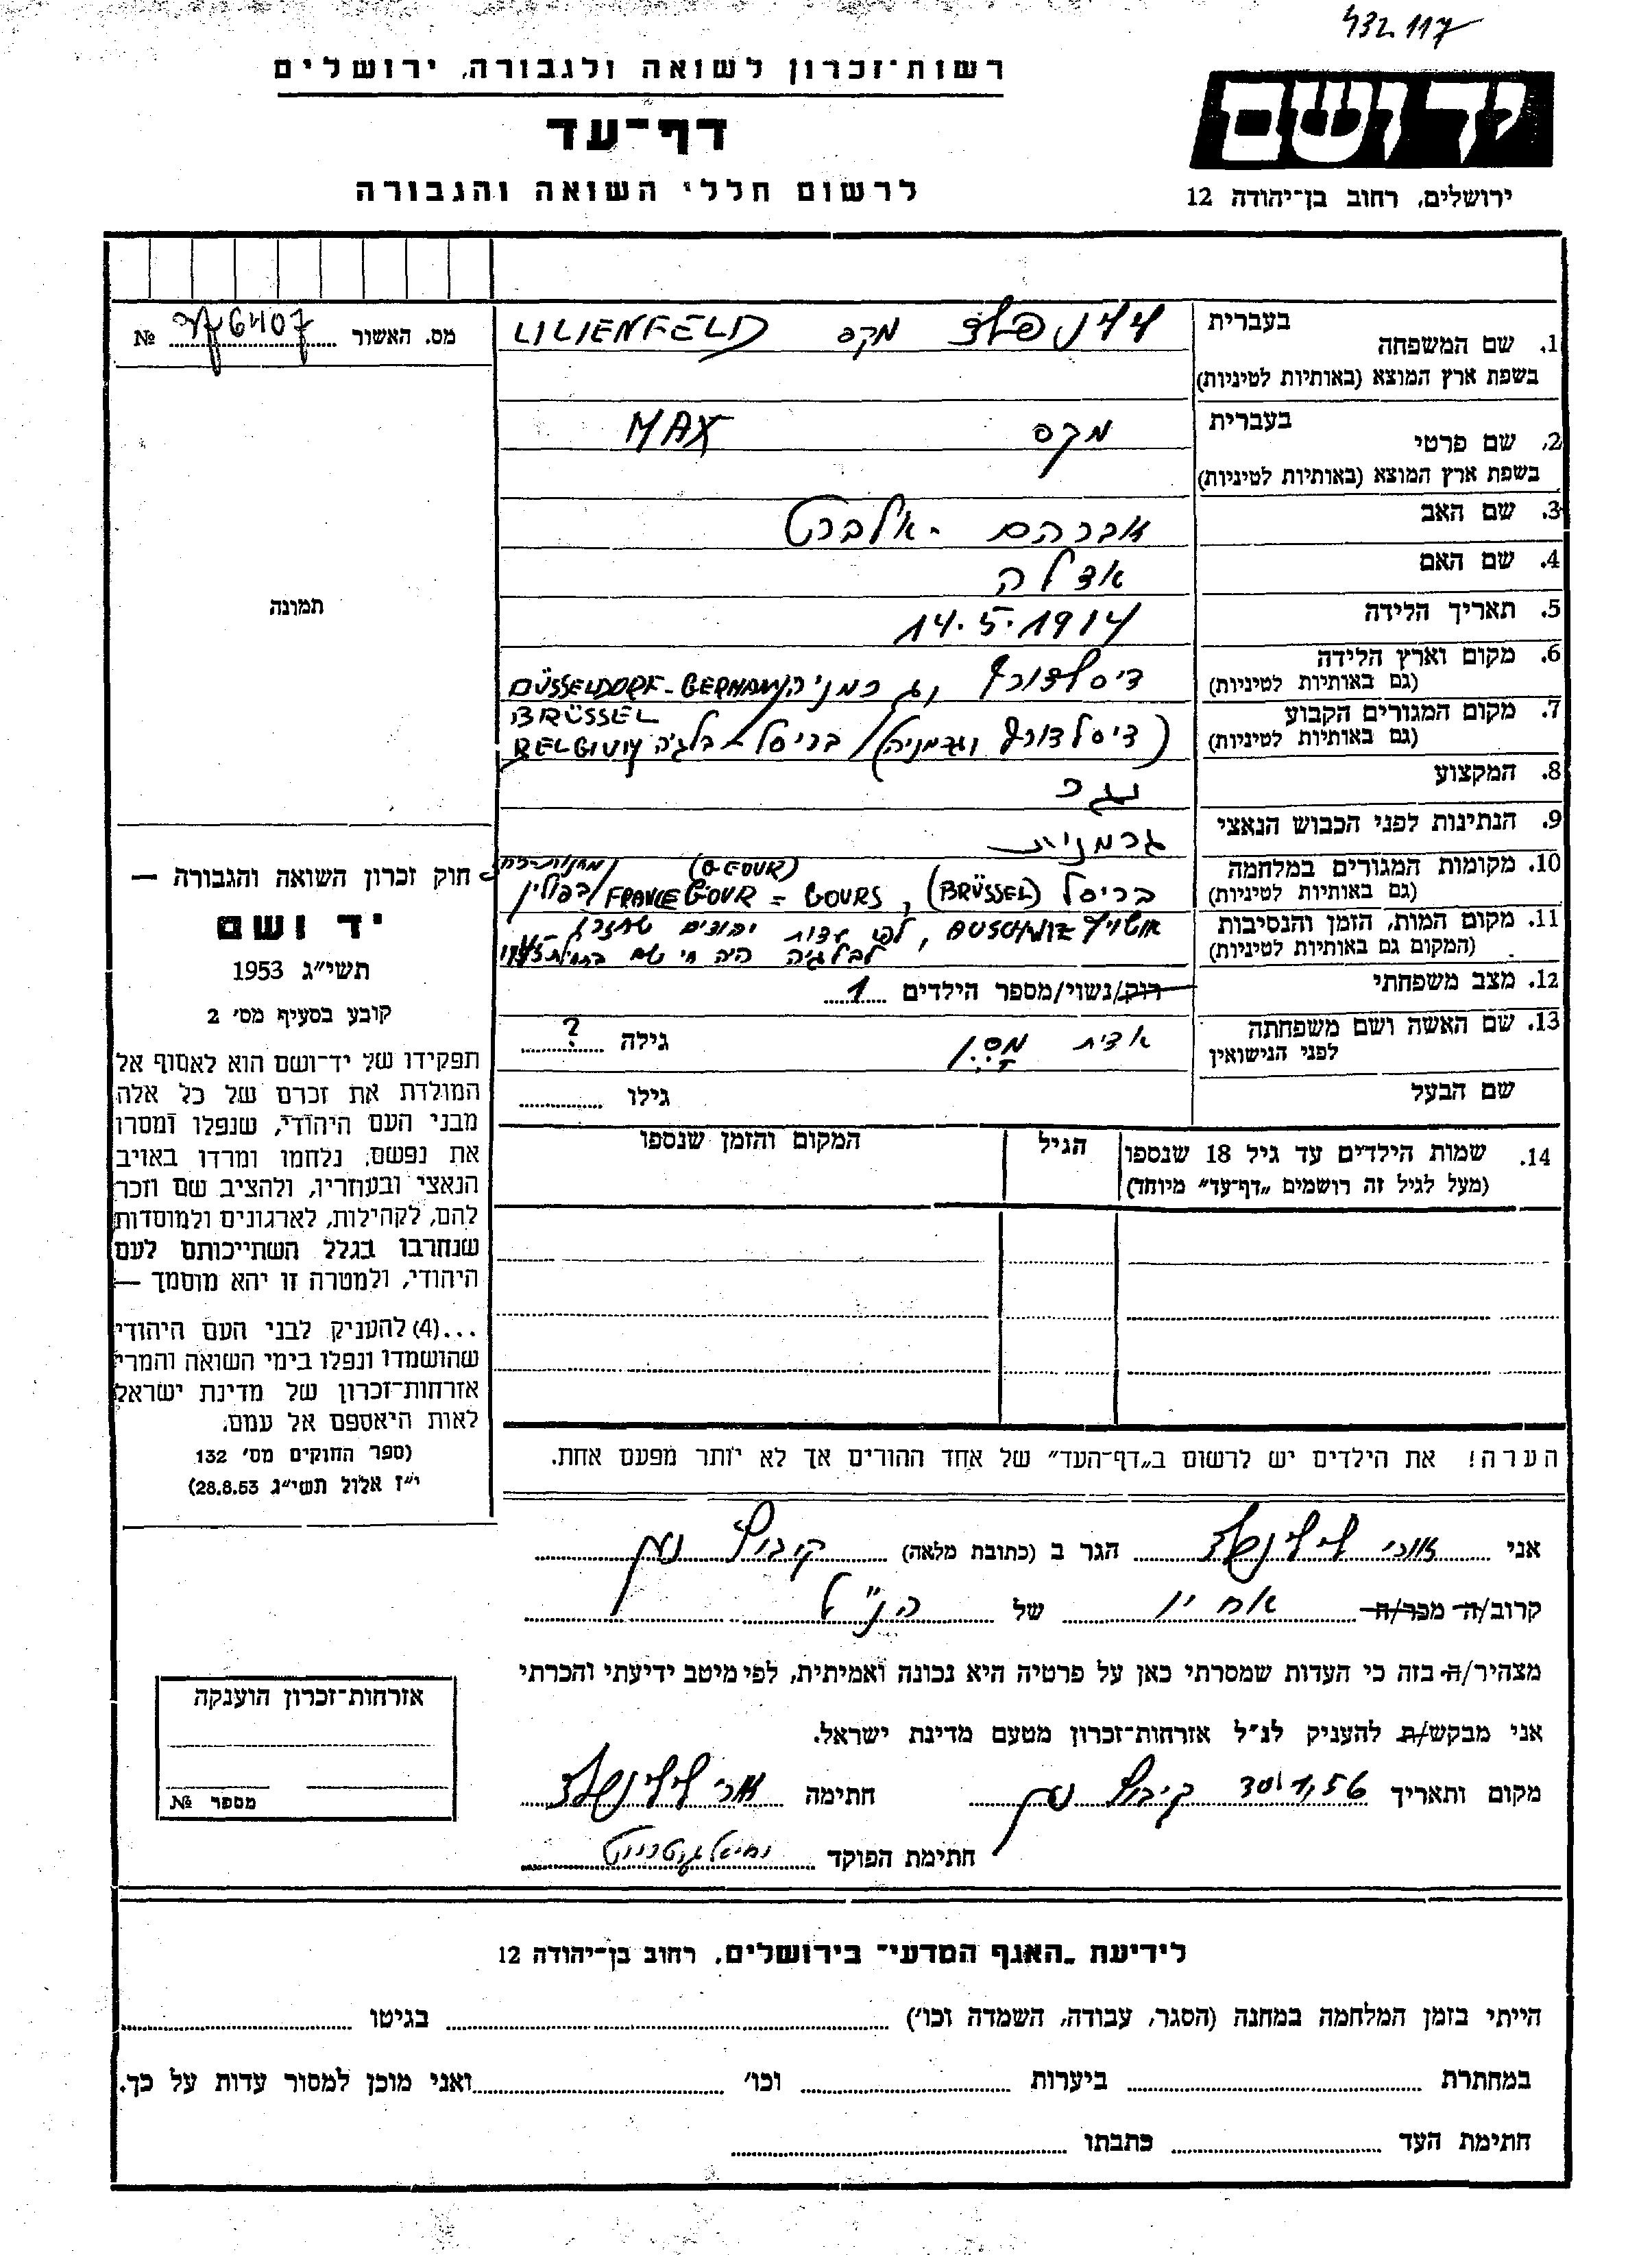 432.117
רשות־זכרון לשואה ולגבורה, ירושלים
דף־עד
לרשום חללי השואה והגבורה
יד ושם
ירושלים, רחוב בן־יהודה 12
בעברית
1. שם המשפחה
בשפת ארץ המוצא (באותיות לטיניות)
לילינפלד מקס LILIENFELD
מס. האשור № 6407
בעברית
2. שם פרטי
בשפת ארץ המוצא (באותיות לטיניות)
מקס MAX
3. שם האב אברהם - אלברט
4. שם האם אדלה
5. תאריך הלידה 14.5.1914
6. מקום וארץ הלידה
(גם באותיות לטיניות)
דיסלדורף גרמניה DÜSSELDORF - GERMANY
7. מקום המגורים הקבוע
(גם באותיות לטיניות)
BRÜSSEL
(דיסלדורף גרמניה) בריסל - בלגיה BELGIUM
8. המקצוע נגר
9. הנתינות לפני הכבוש הנאצי גרמנית
10. מקומות המגורים במלחמה
(גם באותיות לטיניות)
בריסל (BRÜSSEL), GOURS = GOUR FRANCE / בפולין
11. מקום המות, הזמן והנסיבות
(המקום גם באותיות לטיניות)
אושויץ AUSCHWITZ, לפי עדות ידידים שחזרו
לבלגיה היה חי שם בתחילת 1945
12. מצב משפחתי
רווק/נשוי/מספר הילדים 1
13. שם האשה ושם משפחתה
לפני הנישואין
אדית גילה ?
שם הבעל גילו
14. שמות הילדים עד גיל 18 שנספו
(מעל לגיל זה רושמים „דף־עד״ מיוחד)
הגיל
המקום והזמן שנספו
הערה! את הילדים יש לרשום ב„דף־העד״ של אחד ההורים אך לא יותר מפעם אחת.
תמונה
חוק זכרון השואה והגבורה —
יד ושם
תשי״ג 1953
קובע בסעיף מס׳ 2
תפקידו של יד־ושם הוא לאסוף אל
המולדת את זכרם של כל אלה
מבני העם היהודי, שנפלו ומסרו
את נפשם, נלחמו ומרדו באויב
הנאצי ובעוזריו, ולהציב שם וזכר
להם, לקהילות, לארגונים ולמוסדות
שנחרבו בגלל השתייכותם לעם
היהודי, ולמטרה זו יהא מוסמך —
...(4) להעניק לבני העם היהודי
שהושמדו ונפלו בימי השואה והמרי
אזרחות־זכרון של מדינת ישראל
לאות היאספם אל עמם.
(ספר החוקים מס׳ 132
י״ז אלול תשי״ג 28.8.53)
אני אורי לילינפלד הגר ב (כתובת מלאה) קיבוץ נען
קרוב/ה מכר/ה אחיו של הנ״ל
מצהיר/ה בזה כי העדות שמסרתי כאן על פרטיה היא נכונה ואמיתית, לפי מיטב ידיעתי והכרתי
אני מבקש/ת להעניק לנ״ל אזרחות־זכרון מטעם מדינת ישראל.
מקום ותאריך 56 קיבוץ נען חתימה אורי לילינפלד
חתימת הפוקד
אזרחות־זכרון הוענקה
מספר №
לידיעת „האגף המדעי״ בירושלים, רחוב בן־יהודה 12
הייתי בזמן המלחמה במחנה (הסגר, עבודה, השמדה וכו׳) בגיטו
במחתרת ביערות וכו׳ ואני מוכן למסור עדות על כך.
חתימת העד כתבתו